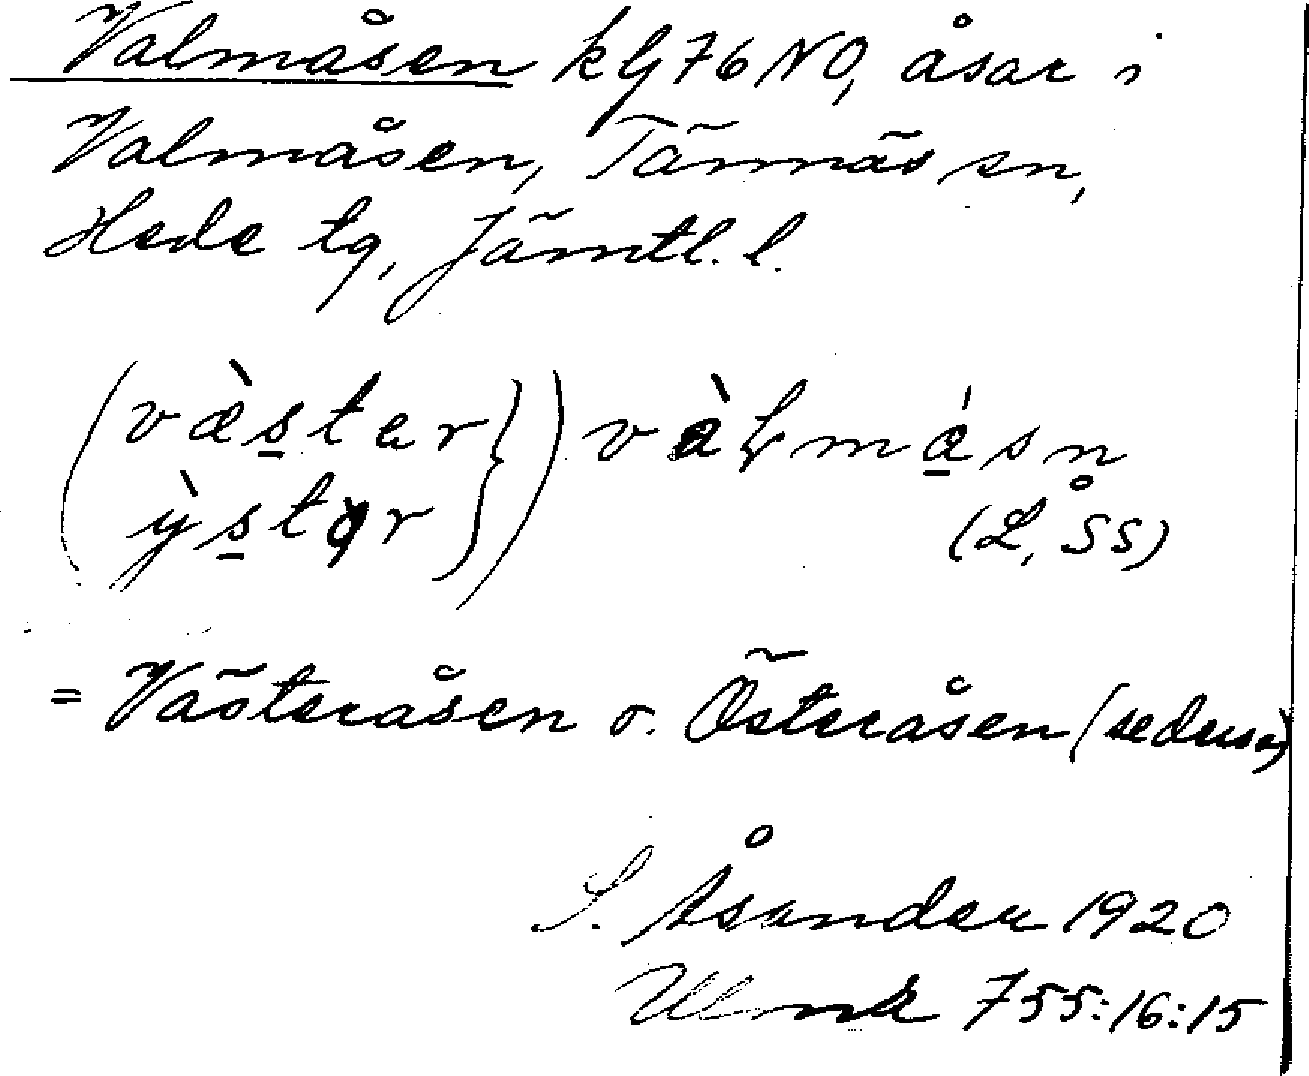 Valmåsen kbj 76 NO, åsar i
Valmåsen, Tännäs sn,
Hede tg, Jämtl. l.
(væ̀s̲ter}) vàɫmás̲n
ỳs̲tər
(L, SS)
= Västeråsen o. Österåsen (
S. Åsander 1920
Ulmk 755:16:15